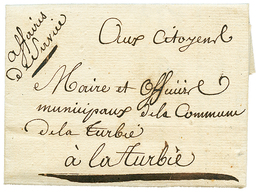 affairis
de Service
Aux Citoyens
Maire et officiers
municipaux de la Commune
de la turbie
à la turbie